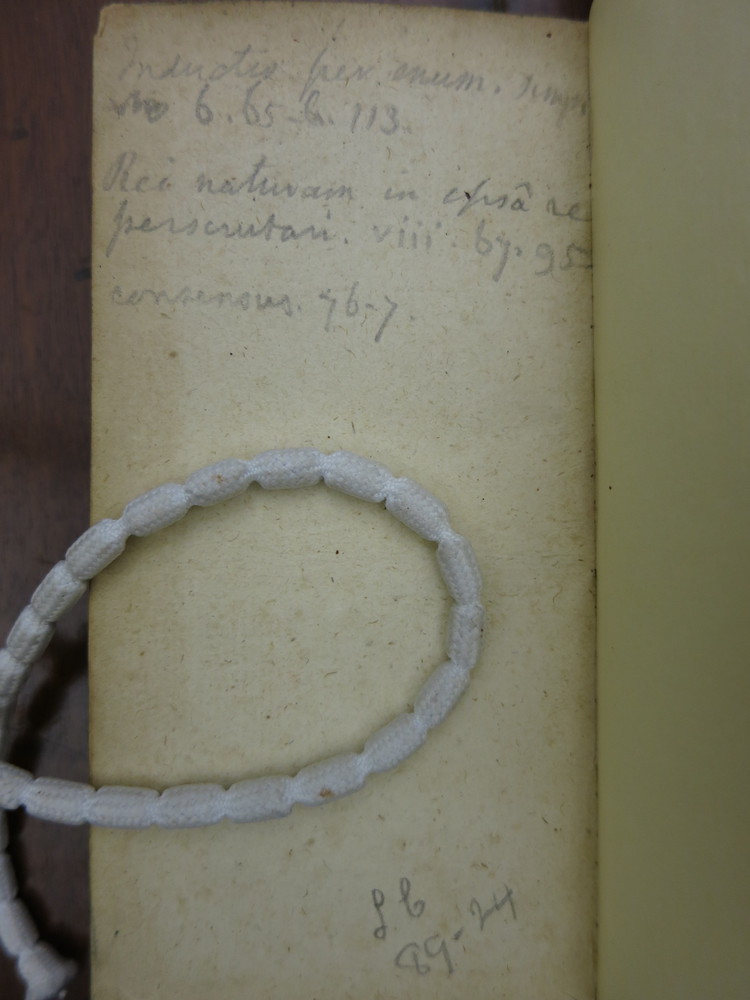 Inductio per enum. simp
6. 65-6. 113.
Rei naturam in ipsâ re
perscrutari. viii. 67. 95
consensus. 76-7.
89-24